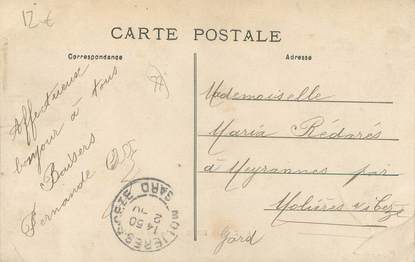 12 €
CARTE POSTALE
Correspondance
Adresse
Affectueux
bonjour à tous
Baisers
Fernande
Mademoiselle
Maria Rédarès
à Meyrannes par
Molières s/Cèze
Gard
MOLIERES-S-CEZE
14 50
2
GARD